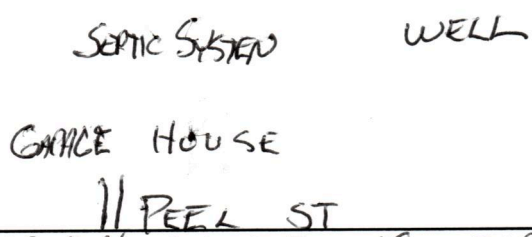 SEPTIC SYSTEM WELL
GARAGE HOUSE
11 PEEL ST